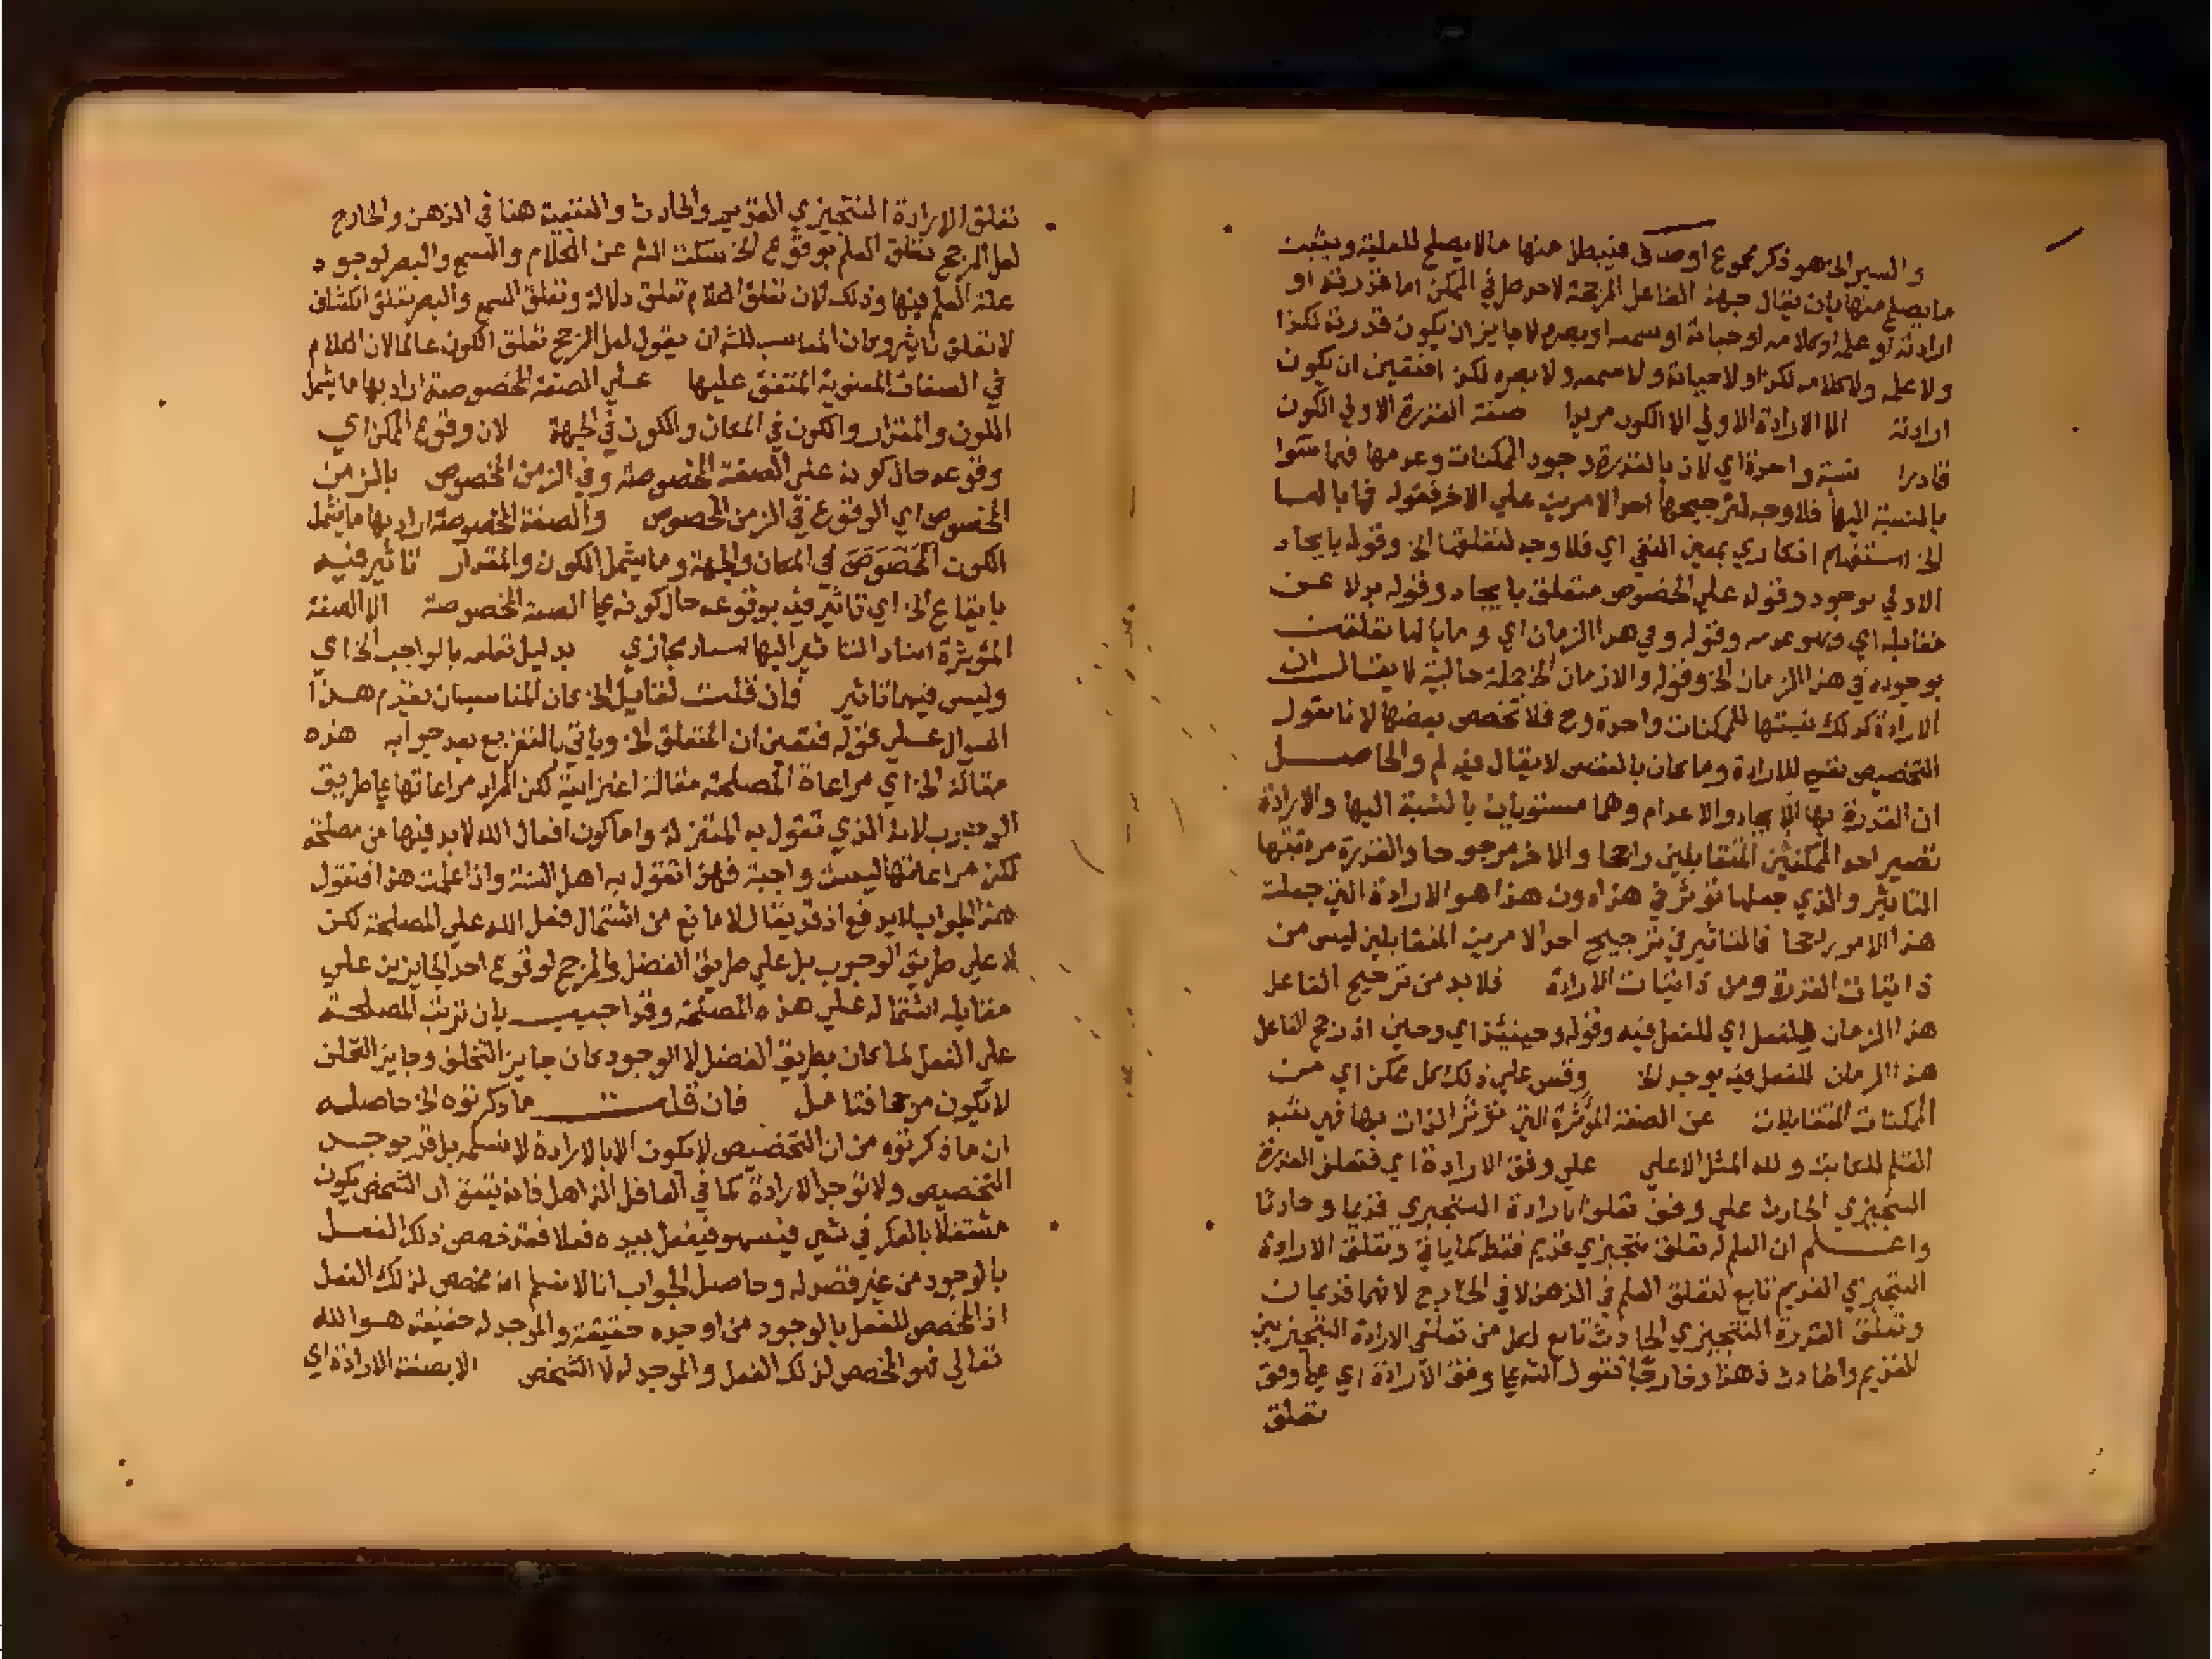 والسبر الخ هو ذكر مجموع اوصاف فيبطل منها ما لا يصلح للعلية ويثبت
ما يصلح منها بان يقال جهة الفاعل المرجحة لاحد طرفي الممكن اما قدرته او
ارادته او علمه او كلامه او حياته او سمعه او بصره لا جايز ان يكون قدرته لكذا
ولا علمه ولا كلامه لكذا ولا حياته ولا سمعه ولا بصره لكذا فتعين ان يكون
ارادته الا الارادة الاولي الا الكون مريدا صفة القدرة الاولي الكون
قادرا نسبة واحدة اي لان بالقدرة وجود الممكنات وعدمها فهما سوا
بالنسبة اليها فلا وجه لترجيحها احد الامرين علي الاخر فقوله فما بالها
الخ استفهام انكاري بمعني النفي اي فلا وجه لتعلقها الخ وقوله بايجاد
الاولي بوجود وقوله علي الخصوص متعلق بايجاد وقوله بدلا عن
مقابله اي وهو عدمه وقوله وفي هذا الزمان اي وما بالها تعلقت
بوجوده في هذا الزمان الخ وقوله والازمان الخ جملة حالية لا يقال ان
الارادة كذلك نسبتها للممكنات واحدة وح فلا تخصص بعضها لانا نقول
التخصيص نفسي للارادة وما كان بالنفس لا يقال فيه لم والحاصل
ان القدرة بها الايجاد والاعدام وهما مستويان بالنسبة اليها والارادة
تصير احد الممكنين المتقابلين راجحا والاخر مرجوحا والقدرة مرتبتها
التاثير والذي جعلها تؤثر في هذا دون هذا هو الارادة التي جعلت
هذا الامر راجحا فالتاثير في ترجيح احد الامرين المتقابلين ليس من
ذاتيات القدرة ومن ذاتيات الارادة فلا بد من ترجيح الفاعل
هذا الزمان للفعل اي للفعل فيه وقوله وحينئذ اي وحين اذ رجح الفاعل
هذا الزمان للفعل فيه يوجد الخ وقس علي ذلك كل ممكن اي من
الممكنات المتقابلات عن الصفة المؤثرة التي تؤثر الذات بها فهي شبه
القلم للكاتب ولله المثل الاعلي علي وفق الارادة اي فتعلق القدرة
التنجيزي الحادث علي وفق تعلق الارادة التنجيزي قديما وحادثا
واعلم ان العلم له تعلق تنجيزي قديم فقط كما ياتي وتعلق الارادة
التنجيزي القديم تابع لتعلق العلم في الذهن لا في الخارج لانهما قديمان
وتعلق القدرة التنجيزي الحادث تابع لكل من تعلقي الارادة التنجيزيين
القديم والحادث ذهنا وخارجا فقول الش علي وفق الارادة اي علي وفق
تعلق
تعلق الارادة التنجيزي القديم والحادث والتبعية هنا في الذهن والخارج
لعل المرجح تعلق العلم بوقوع الخ سكت الش عن الكلام والسمع والبصر لوجود
علة العلم فيها وذلك لان تعلق الكلام تعلق دلالة وتعلق السمع والبصر تعلق انكشاف
لا تعلق تاثير وكان المناسب للش ان يقول لعل المرجح تعلق الكون عالما لان الكلام
في الصفات المعنوية المتفق عليها علي الصفة المخصوصة اراد بها ما يشمل
اللون والمقدار والكون في المكان والكون في الجهة لان وقوع الممكن اي
وقوعه حال كونه علي الصفة المخصوصة وفي الزمن المخصوص بالزمن
المخصوص اي الوقوع في الزمن المخصوص والصفة المخصوصة اراد بها ما يشمل
الكون المخصوص في المكان والجهة وما يشمل الكون والمقدار تاثير فيه
بايقاع الخ اي تاثير فيه بوقوعه حال كونه علي الصفة المخصوصة الا الصفة
المؤثرة اسناد التاثير اليها اسناد مجازي بدليل تعلمه بالواجب الخ اي
وليس فيهما تاثير فان قلت لقايل الخ كان المناسب ان يقدم هذا
السوال علي قوله فتعين ان المتعلق الخ وياتي بالتفريع بعد جوابه هذه
مقالة الخ اي مراعاة المصلحة مقالة اعتزالية لكن المراد مراعاتها علي طريق
الوجوب لانه الذي تقول به المعتزلة واما كون افعال الله لا بد فيها من مصلحة
لكن مراعاتها ليست واجبة فهذا تقول به اهل السنة واذا علمت هذا فنقول
هذا الجواب لا يدفع اذ قد يقال لا مانع من اشتمال فعل الله علي المصلحة لكن
لا علي طريق الوجوب بل علي طريق الفضل والمرجح لوقوع احد الجايزين علي
مقابله اشتماله علي هذه المصلحة وقد اجيب بان ترتب المصلحة
علي الفعل لما كان بطريق الفضل لا الوجود كان جايز التخلف وجايز التخلف
لا يكون مرجحا فتامل فان قلت ما ذكرتوه الخ حاصله
ان ما ذكرتوه من ان التخصيص لا يكون الا بالارادة لا نسلمه بل قد يوجد
التخصيص ولا توجد الارادة كما في الغافل الذاهل فانه يتفق ان الشخص يكون
مشتغلا بالفكر في شي فيسهو فيفعل بيده فعلا فقد خصص ذلك الفعل
بالوجود من غير قصد له وحاصل الجواب انا لا نسلم انه مخصص لذلك الفعل
اذ المخصص للفعل بالوجود من اوجده حقيقة والموجد له حقيقة هو الله
تعالي فهو المخصص لذلك الفعل والموجد له لا الشخص الا بصفة الارادة اي